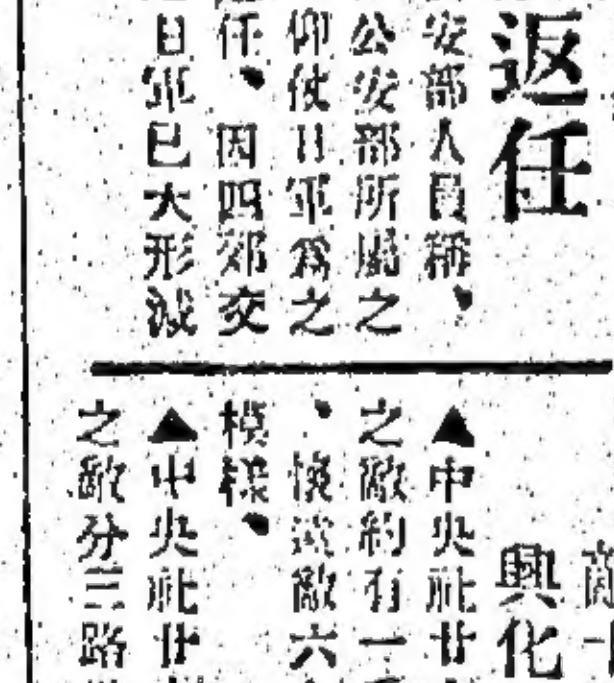 返任
安部人員稱、
公安部所屬之
仰仗日軍爲之
任、因四郊交
日軍已大形減
敵
興化
▲中央社廿
之敵約有一
、懷遠敵六
模樣、
▲中央社廿
之敵分三路